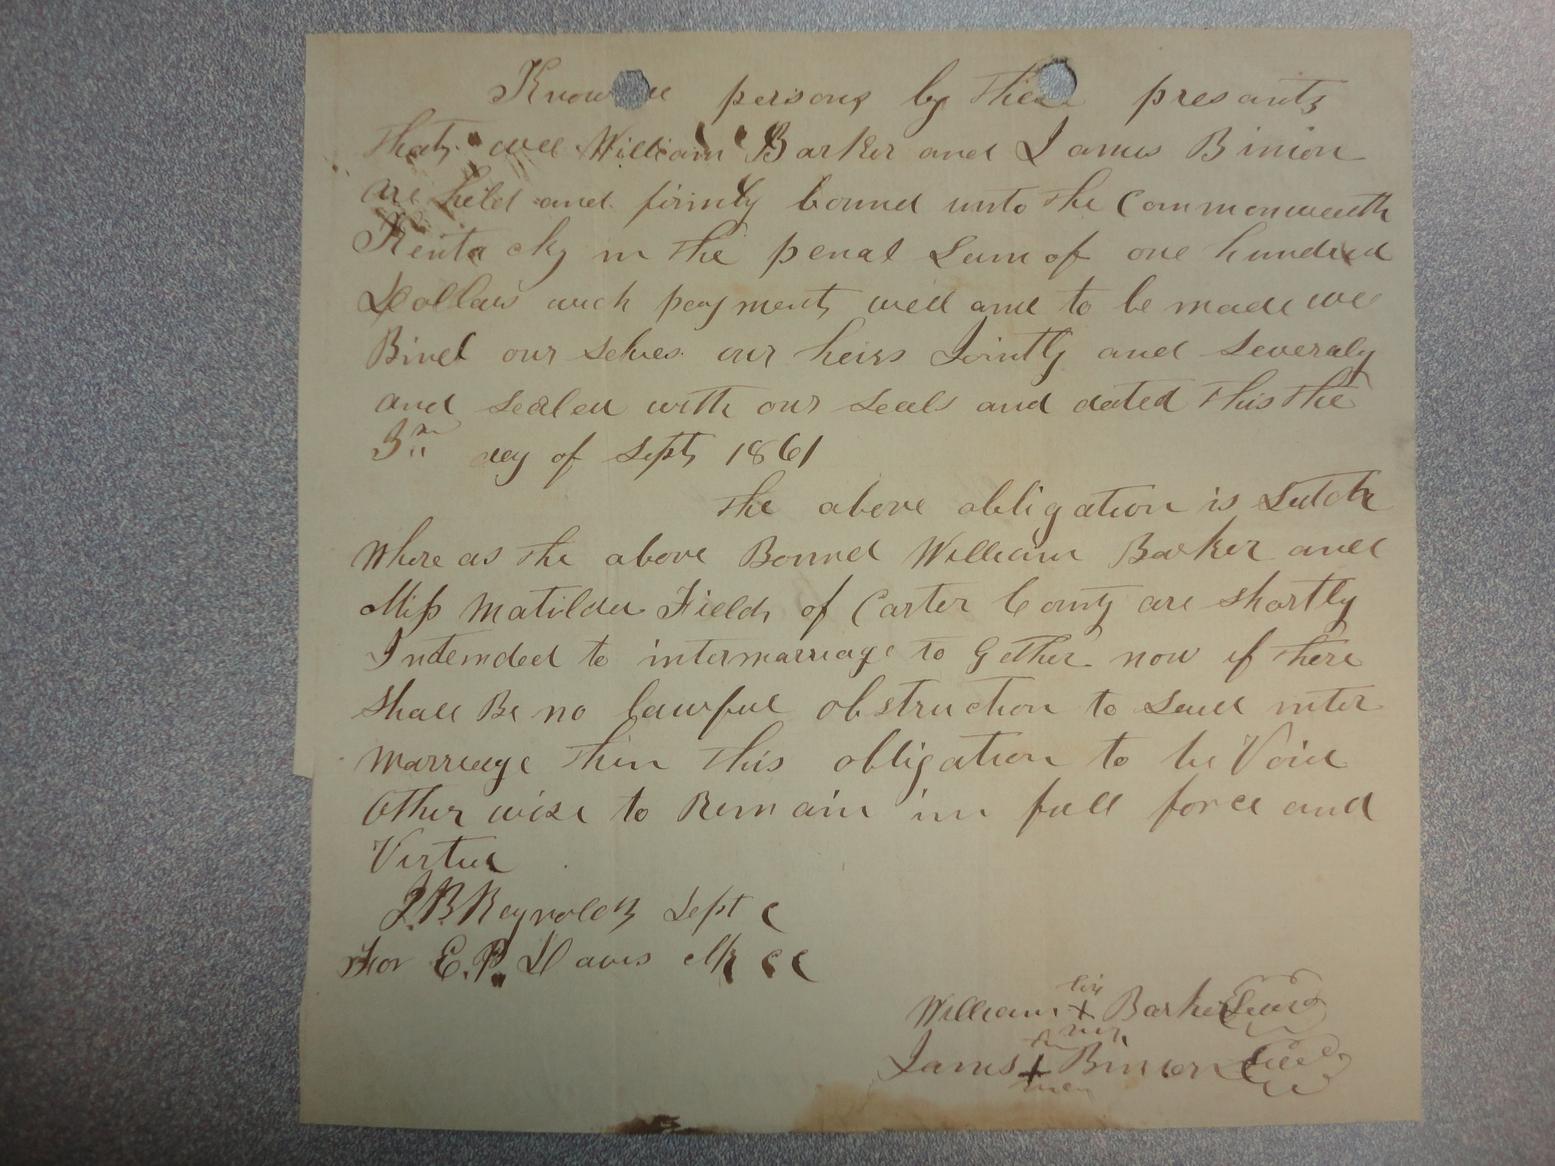 Know persons by these presants
that wee William Barker and James Binion
are held and firmly bound unto the Commonwealth
Kentucky in the penal Sum of one hundred
Dollars wich payment well and to be made we
Bind our Selves our heirs Jointly and Severaly
and Sealed with our Seals and dated this the
3rd day of Sept 1861
The above obligation is Sutch
Where as the above Bound William Barker and
Miss Matilda Fields of Carter County are shortly
Intended to intermarriage to Gether now if there
Shall Be no lawful obstruction to Said inter
marriage then this obligation to be Void
Other wise to Remain in full force and
Virtue
J.B. Reynolds Dept C
For E.P. Davis Clk C C C
his
William + Barker Seal
mark
James + Binion Seal
mark